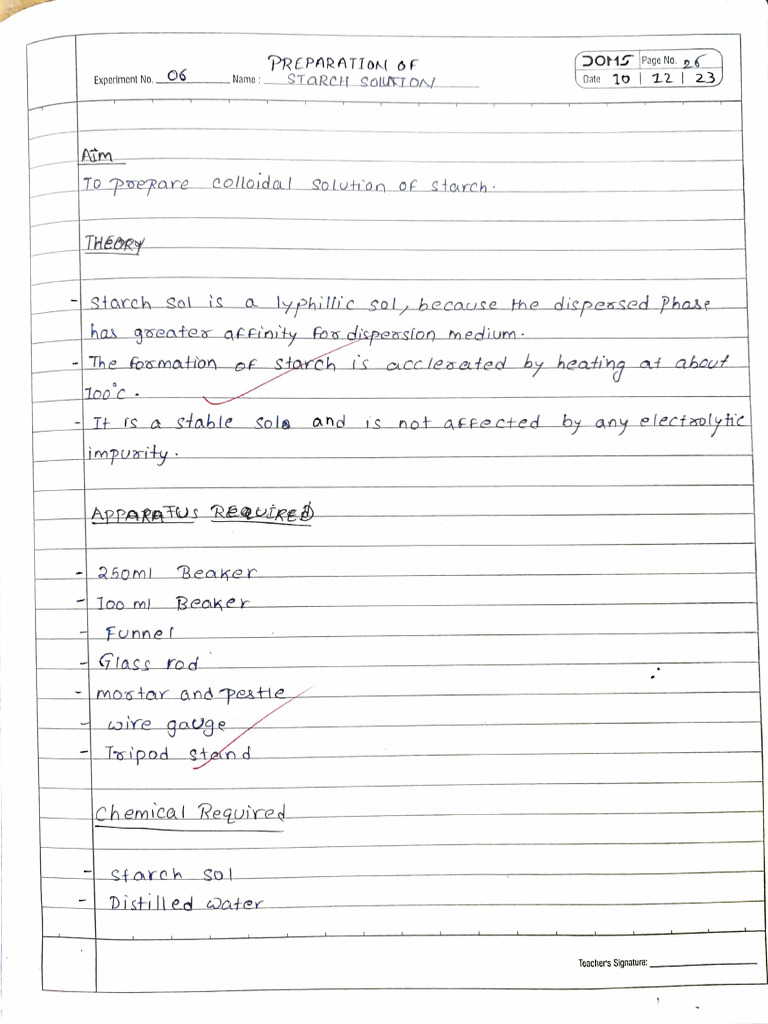 PREPARATION OF
Experiment No. 06 Name : STARCH SOLUTION
DOMS Page No. 26
Date 10 | 12 | 23
Aim
To prepare colloidal solution of starch.
THEORY
- Starch sol is a lyphillic sol, because the dispersed Phase
has greater affinity for dispersion medium.
- The formation of starch is acclerated by heating at about
100°c.
- It is a stable sol and is not affected by any electrolytic
impurity.
APPARATUS REQUIRED
- 250ml Beaker
- 100 ml Beaker
- Funnel
- Glass rod
- mortar and pestle
- wire gauge
- Tripod stand
Chemical Required
- Starch sol
- Distilled water
Teacher's Signature: